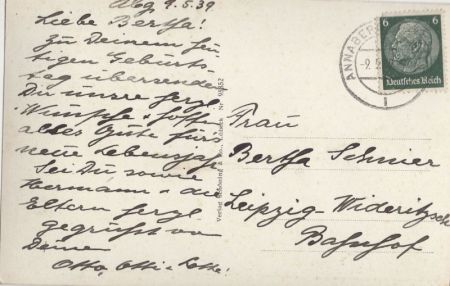 Abg 9.5.39
Liebe Bertha!
Zu Deinem heu-
tigen Geburts-
tag übersenden
Dir unsre herzl.
Wünsche u. hoffen
alles Gute fürs
neue Lebensjahr
Sei Du, sowie
Hermann u. die
Eltern herzl.
gegrüßt von
Deine
Otto, Otti u. Lotte!
ANNABER
6 6
Deutsches Reich
Frau
Bertha Schnier
Leipzig-Wideritzsch
Bahnhof